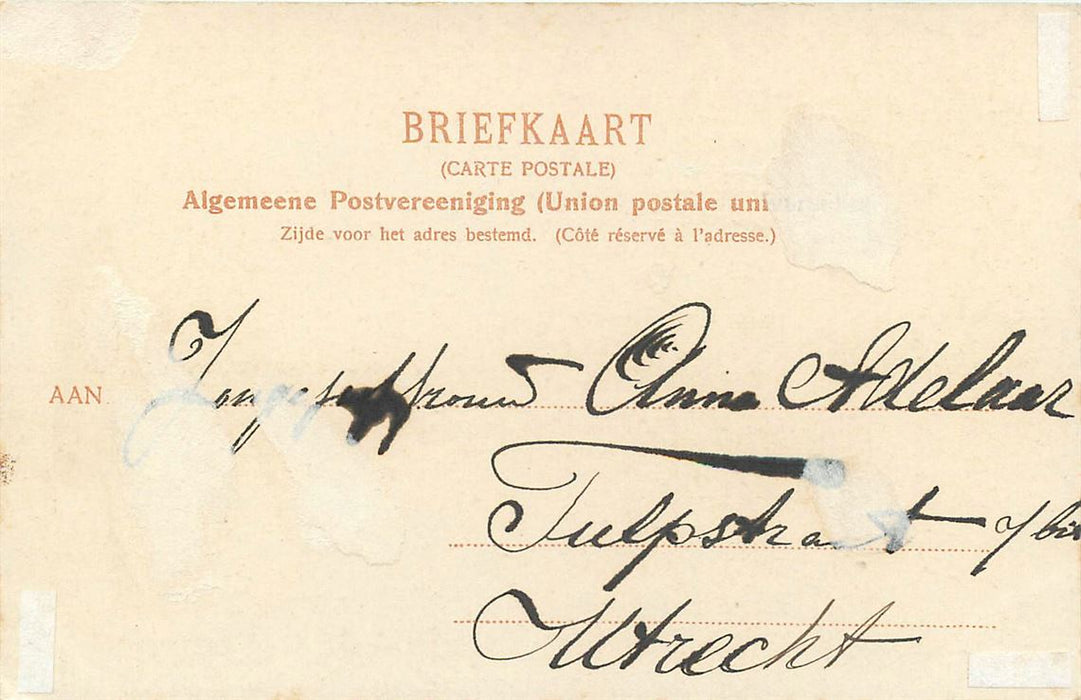 BRIEFKAART
(CARTE POSTALE)
Algemeene Postvereeniging (Union postale uni
Zijde voor het adres bestemd. (Côté réservé à l'adresse.)
AAN Anna Adelaar
Tulpstraat
Utrecht